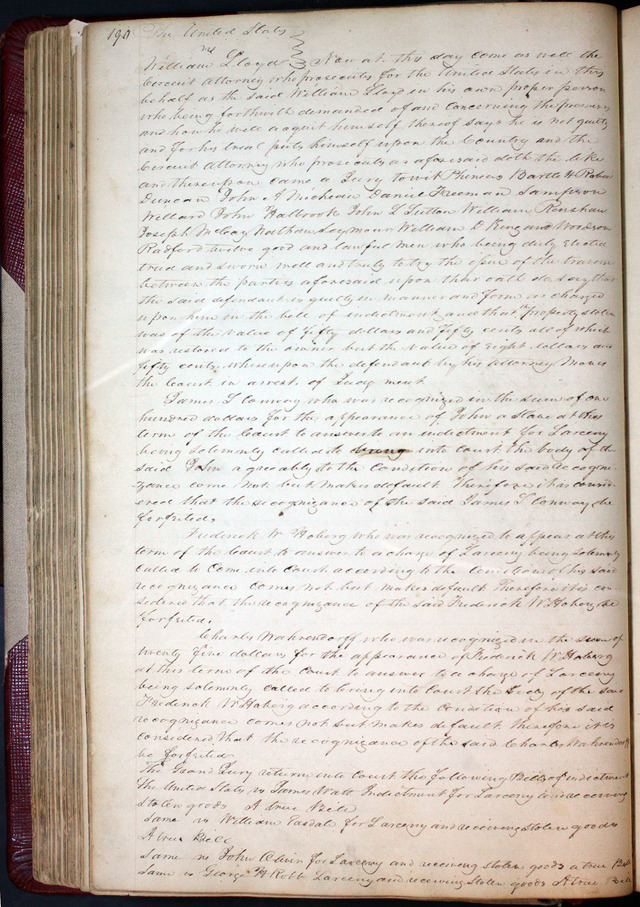 190 The United States
vs
William Lloyd Now at this day come as well the
Circuit Attorney who prosecutes for the United States in this
behalf as the said William Lloyd in his own proper person
who being forthwith demanded of and concerning the premises
and how he will acquit himself thereof says he is not guilty
and for his trial puts himself upon the Country and the
Circuit Attorney who prosecutes as aforesaid doth the like
and thereupon came a Jury towit Phineas Bartlett
Duncan John A Micheau Daniel Freeman Sampson
Willard John Halbrook John L Sutton William Renshaw
Joseph McCoy Nathan Seymour William D King and Woodson
Radford twelve good and lawful men who being duly Elected
tried and sworn well and truly to try the issue of the traverse
between the parties aforesaid upon their oath do say that
the said defendant is guilty in manner and form as charged
upon him in the bill of indictment and that Property stolen
was of the value of fifty dollars and fifty cents all of which
was restored to the owner but the value of Eight dollars and
fifty cents whereupon the defendant by his Attorney moves
the Court in arrest of Judgment
James S Conway who was recognized in the sum of one
hundred dollars for the appearance of John a Slave at this
term of the Court to answer to an indictment for Larceny
being solemnly called to bring into Court the body of the
said John agreeably to the Condition of his said recogni
zance come not but makes default Therefore it is consid
ered that the recognizance of the said James S Conway be
forfeited.
Frederick W Hoberg who was recognized to appear at this
term of the Court to answer to a charge of Larceny being solemnly
called to Come into Court according to the Condition of his said
recognizance comes not but makes default Therefore it is con
sidered that the recognizance of the said Frederick W Hoberg be
forfeited.
Charles Wahrendorff who was recognized in the sum of
twenty five dollars for the appearance of Frederick W Hoberg
at this term of the Court to answer to a charge of Larceny
being solemnly called to bring into Court the Body of the said
Frederick W Hoberg according to the Condition of his said
recognizance comes not but makes default therefore it is
considered that the recognizance of the said Charles Wahrendorff
be forfeited
The Grand Jury return into Court the following Bills of indictment
The United States vs James Watt Indictment for Larceny and receiving
stolen goods A true Bill
Same vs William Tasdal for Larceny and receiving stolen goods
A true Bill
Same vs John for Larceny and receiving stolen goods a true Bill
Same vs George H Robb Larceny and receiving stolen goods A true Bill